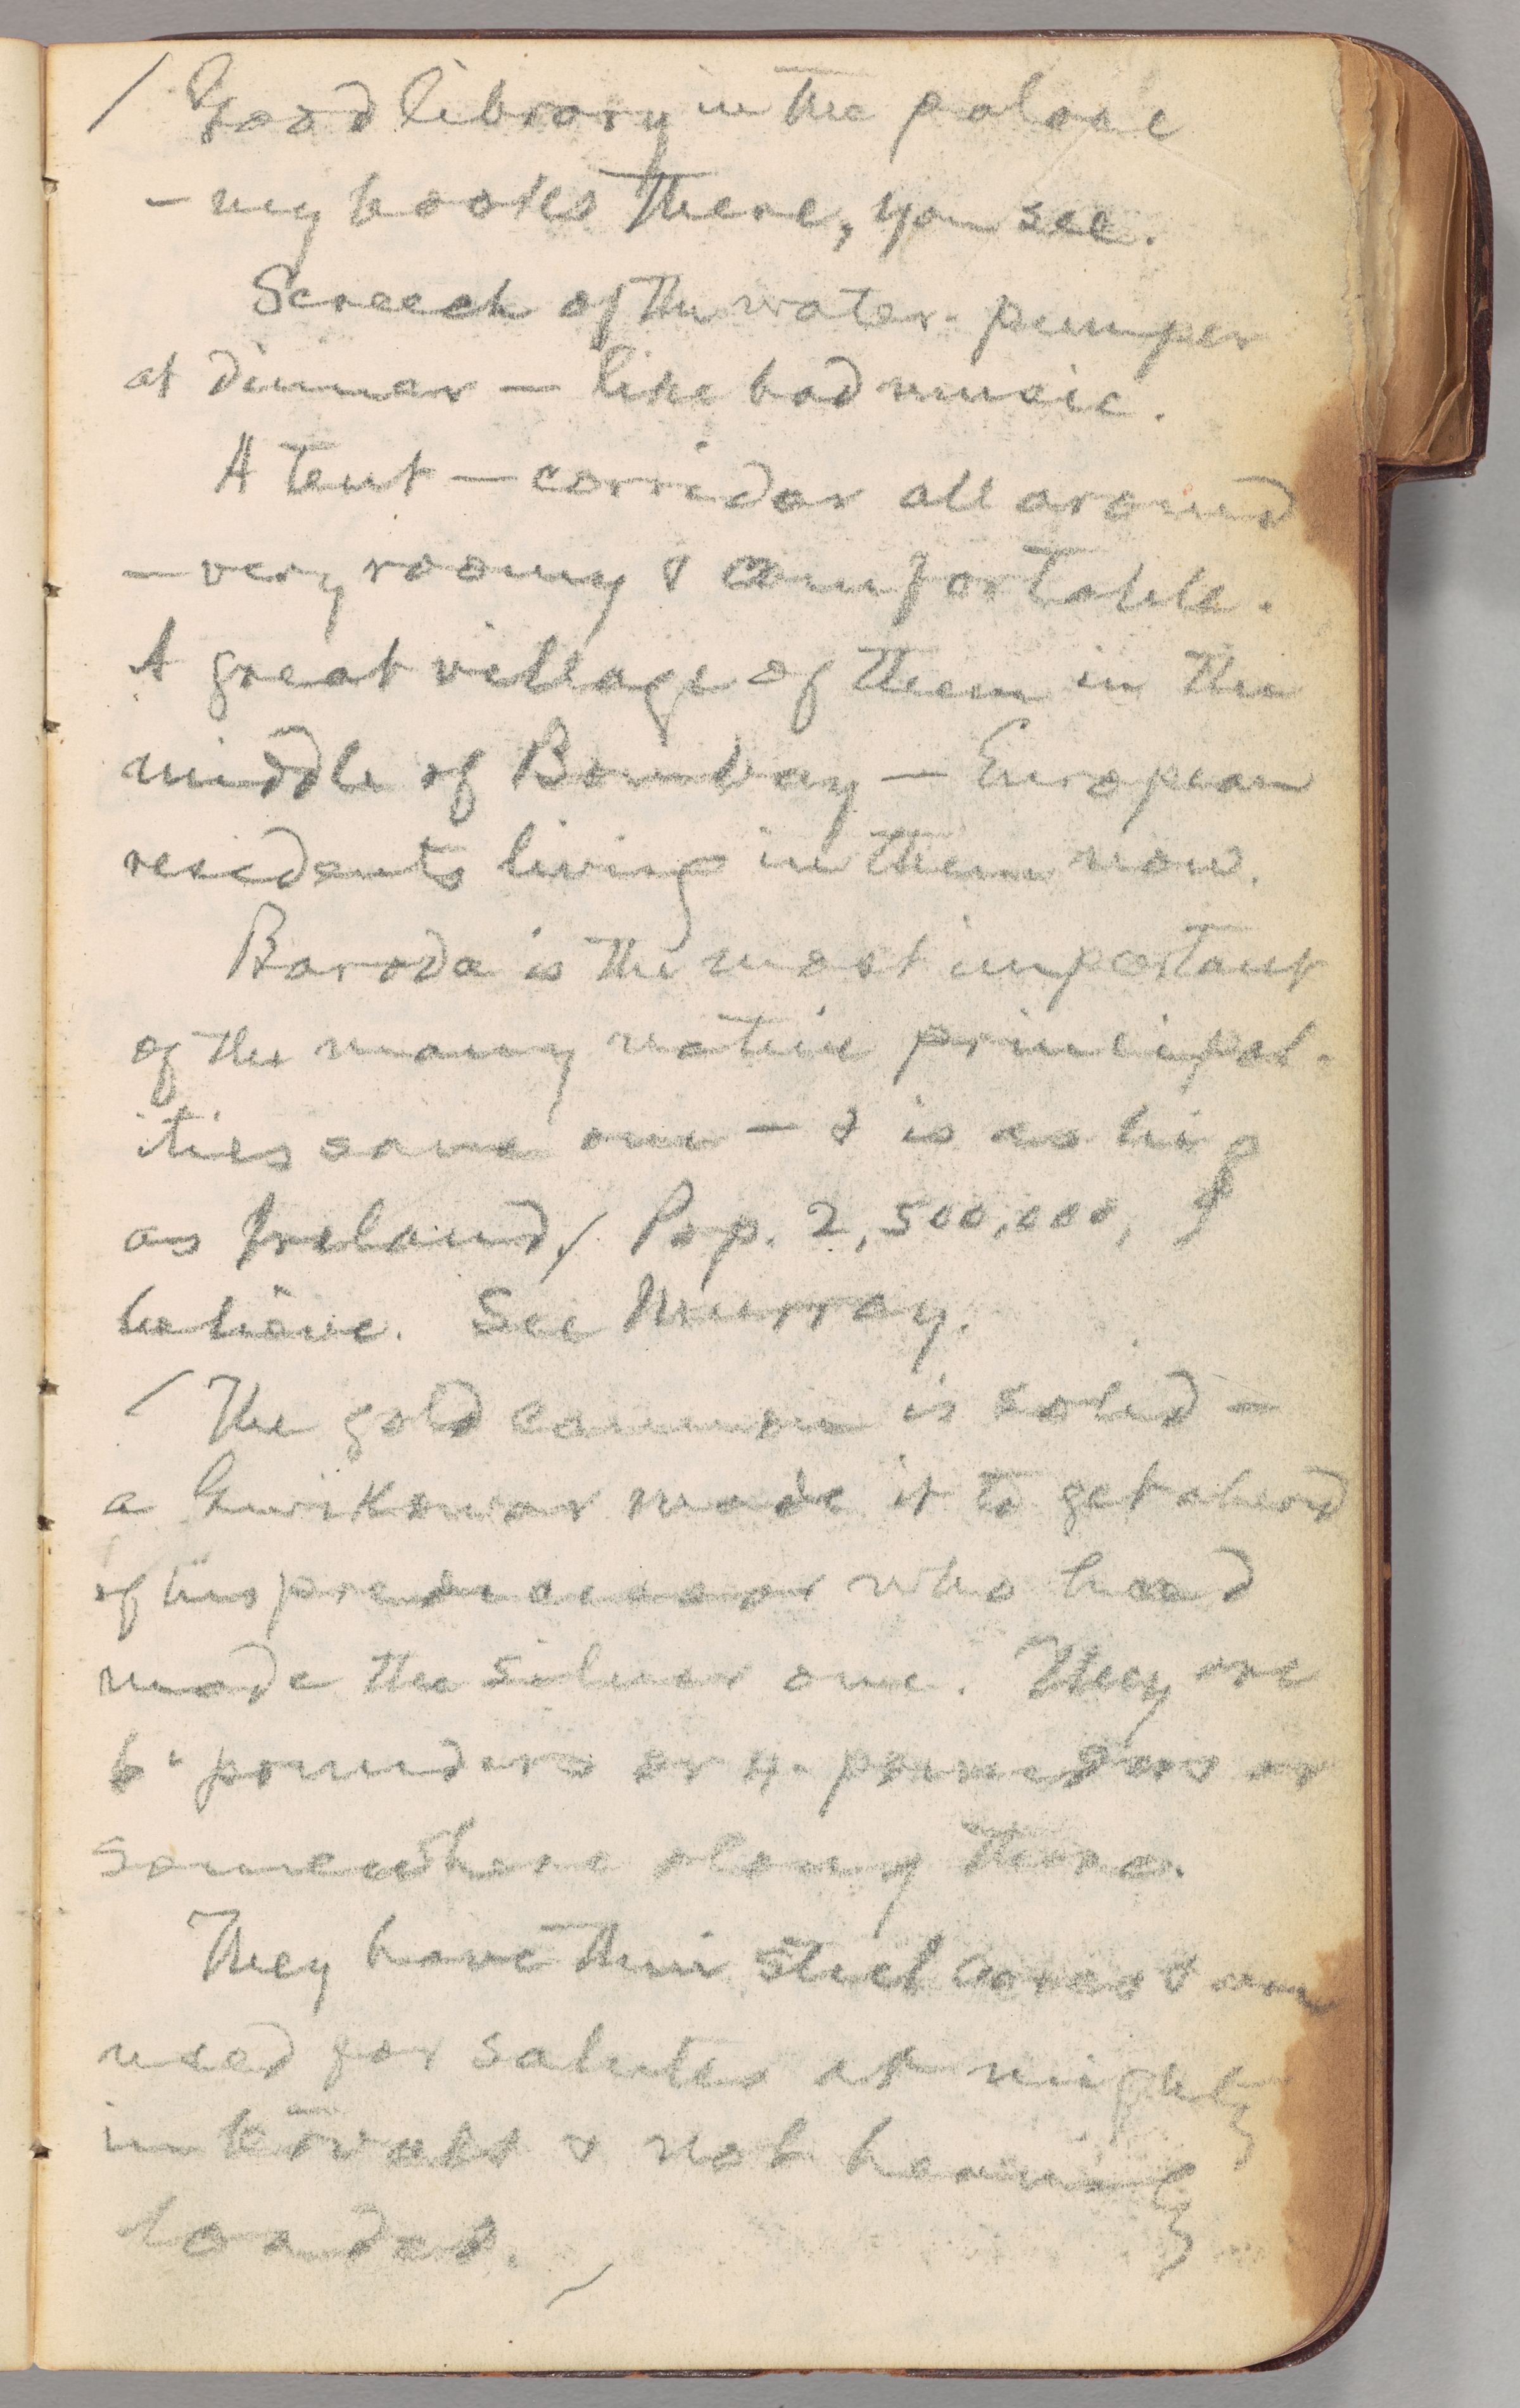 / Good library in the palace
– my books there, you see.
Screech of the water-pumper
at dinner — like bad music.
A tent — corridor all around
— very roomy & comfortable.
A great village of them in the
middle of Bombay — European
residents living in them now.
Baroda is the most important
of the many native principal-
ities save one — & is as big
as Ireland/ Pop. 2,500,000, I
believe. See Murray.
/ The gold cannon is solid —
a Gwikowar made it to get ahead
of his predecessor who had
made the silver one. They are
6-pounders or 4-pounders or
somewhere along there.
They have thin steel cores & are
used for salutes at mighty
intervals & not heavily
loaded. /